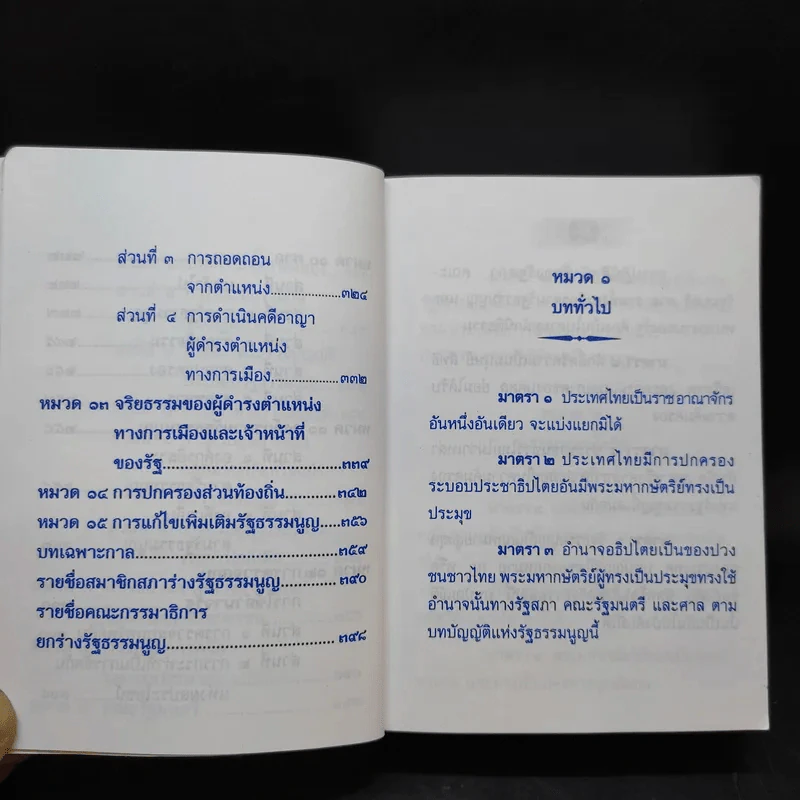 ส่วนที่ ๓ การถอดถอน
จากตำแหน่ง....................๓๒๔
ส่วนที่ ๔ การดำเนินคดีอาญา
ผู้ดำรงตำแหน่ง
ทางการเมือง....................๓๓๒
หมวด ๑๓ จริยธรรมของผู้ดำรงตำแหน่ง
ทางการเมืองและเจ้าหน้าที่
ของรัฐ....................๓๓๙
หมวด ๑๔ การปกครองส่วนท้องถิ่น....................๓๔๒
หมวด ๑๕ การแก้ไขเพิ่มเติมรัฐธรรมนูญ....................๓๕๖
บทเฉพาะกาล....................๓๕๙
รายชื่อสมาชิกสภาร่างรัฐธรรมนูญ....................๓๙๐
รายชื่อคณะกรรมาธิการ
ยกร่างรัฐธรรมนูญ....................๓๙๘
หมวด ๑
บททั่วไป
มาตรา ๑ ประเทศไทยเป็นราชอาณาจักร
อันหนึ่งอันเดียว จะแบ่งแยกมิได้
มาตรา ๒ ประเทศไทยมีการปกครอง
ระบอบประชาธิปไตยอันมีพระมหากษัตริย์ทรงเป็น
ประมุข
มาตรา ๓ อำนาจอธิปไตยเป็นของปวง
ชนชาวไทย พระมหากษัตริย์ผู้ทรงเป็นประมุขทรงใช้
อำนาจนั้นทางรัฐสภา คณะรัฐมนตรี และศาล ตาม
บทบัญญัติแห่งรัฐธรรมนูญนี้